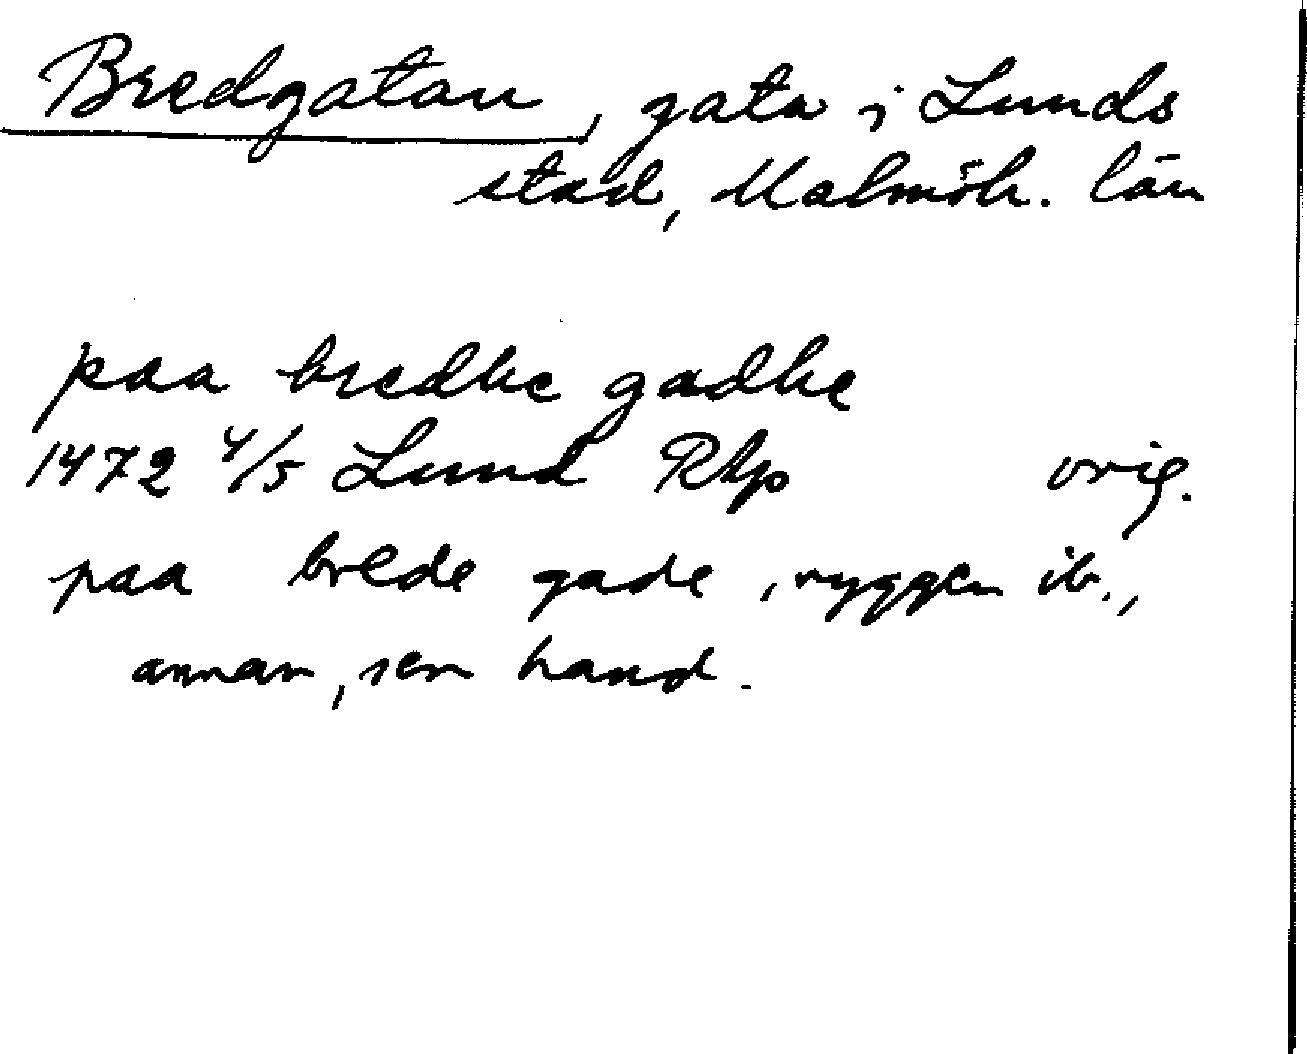 Bredgatan, gata i Lunds
stad, Malmöh. län
paa bredhe gadhe
1472 4/5 Lund RAp orig.
paa brede gade, ryggen ib.,
annan, sen hand.